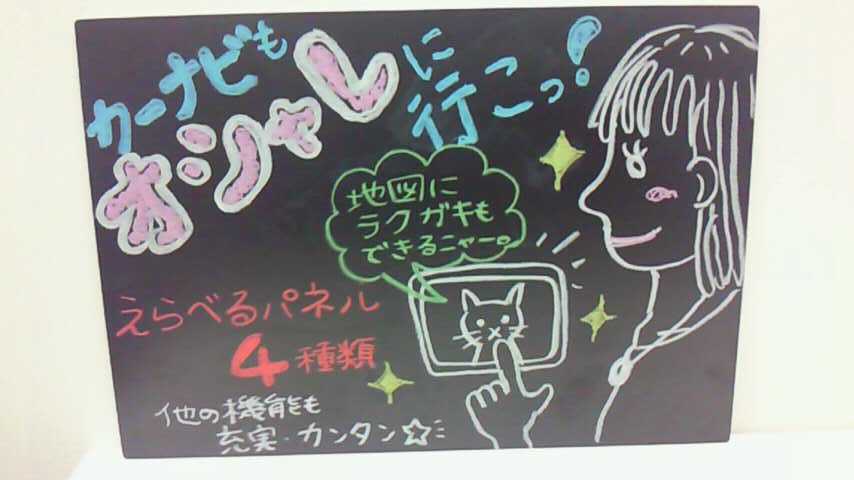 カーナビも
オシャレに
行こっ!
地図に
ラクガキも
できるニャー。
えらべるパネル
4種類
他の機能も
充実・カンタン☆